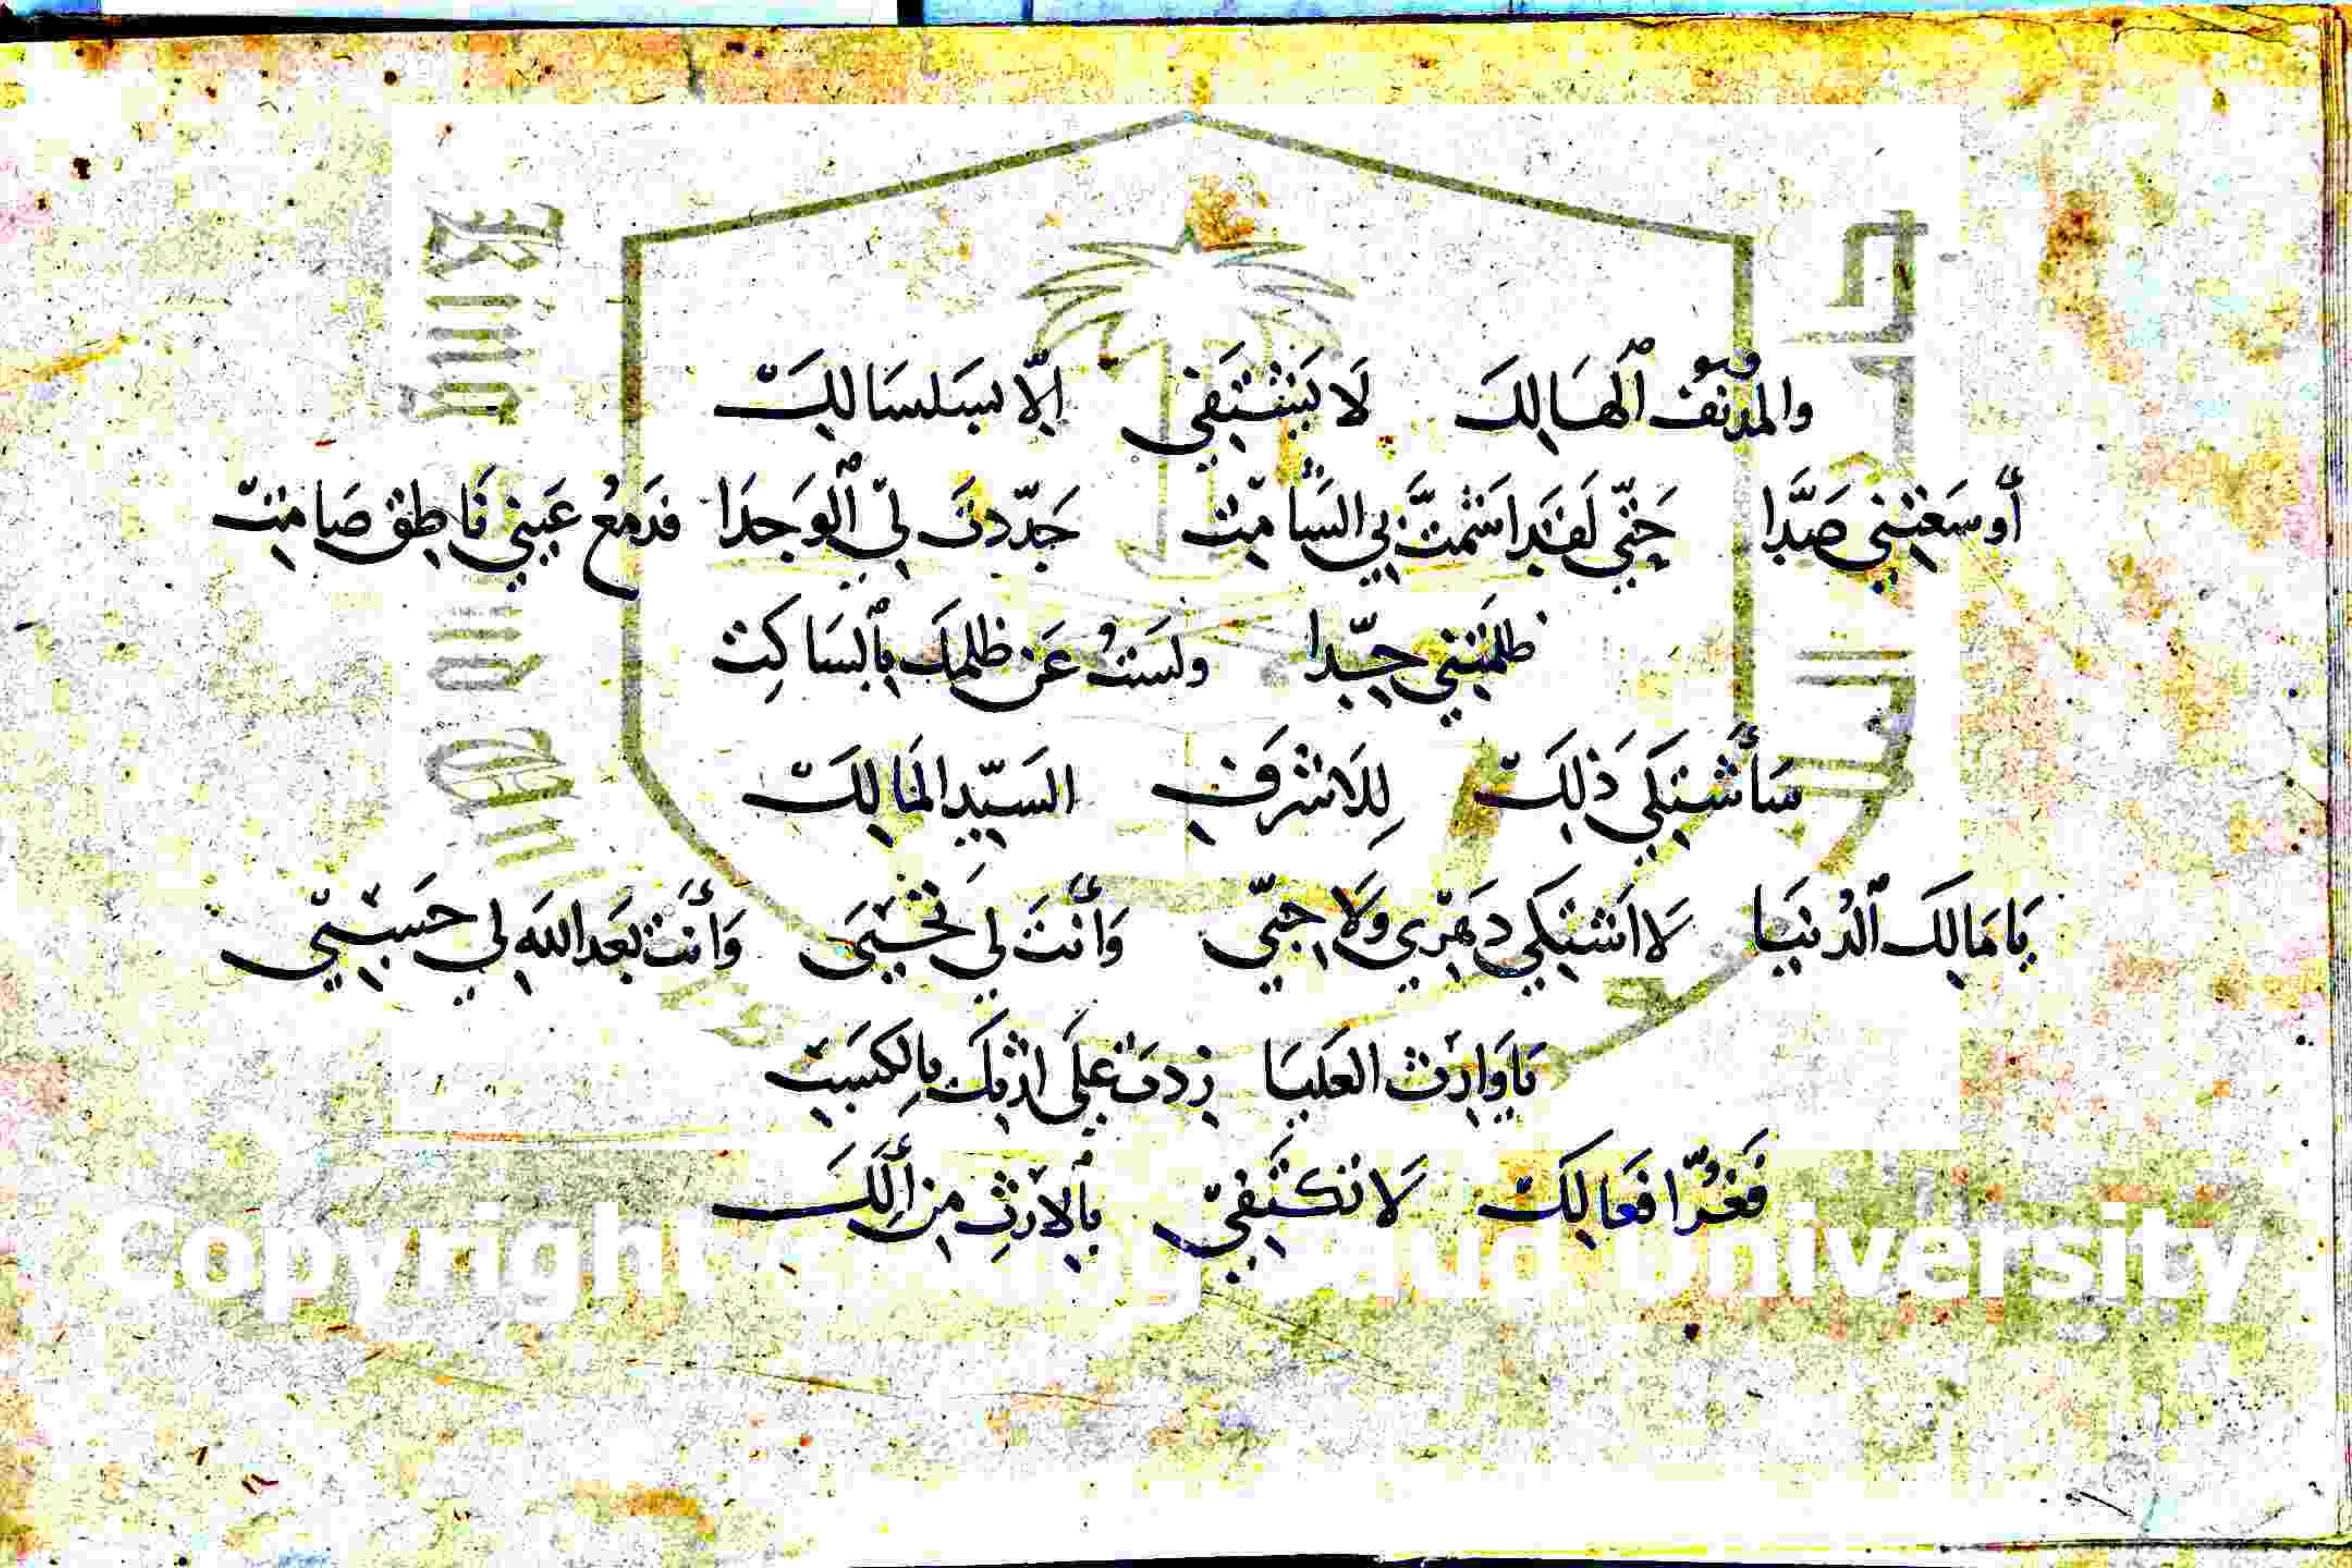 والمدنفُ ٱلهَالِكَ لَا يَشْتَفِي إلّا بسَلسَالِكَ
أَوسَعْتِنِي صَدَّا حَتّي لَقَد اشمتَّ بي الشَّامِت جَدّدتَ لي ٱلوَجدَا فدَمعُ عَيني نَاطِق صَامِت
ظلمتَني جِدّا ولستُ عَن ظلمكَ بِٱلسَاكِت
سَأَشتَكي ذَلِكَ لِلَاشرَفِ السَيّدِ المَالِكَ
يَا مَالِكَ ٱلدُنيَا لَا اَشتكي دَهْري ولَا حِبّي وَأَنتَ لي تَحْيَى وَأَنت بَعد الله لي حَسْبِي
يَا وَارِثَ العَليَا زِدتَ عَلى ارثِكَ بِالكسبِ
فَغُرّ افعَالِكَ لَا تَكتَفِي بِٱلِارثِ مِن أَلِكَ
Copyright © King Saud University